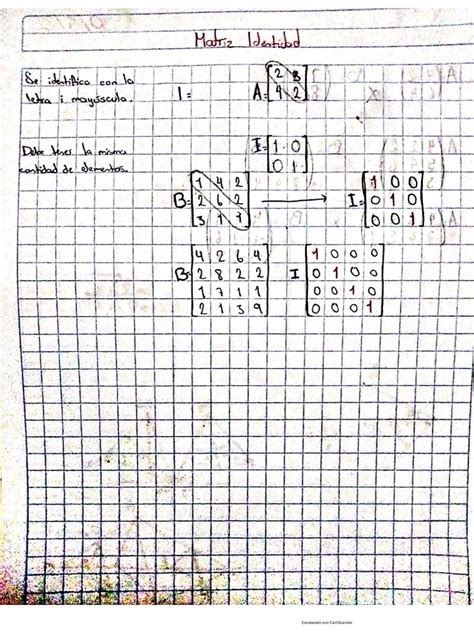 Matriz Identidad
Se identifica con la
letra i mayúscula.
I =
A= [2 8
4 2]
Debe tener la misma
cantidad de elementos.
I= [1 0
0 1]
B= [1 4 2
2 6 2
3 1 7]
I= [1 0 0
0 1 0
0 0 1]
B= [4 2 6 4
2 8 2 2
1 7 1 1
2 1 3 9]
I [1 0 0 0
0 1 0 0
0 0 1 0
0 0 0 1]
Escaneado con CamScanner